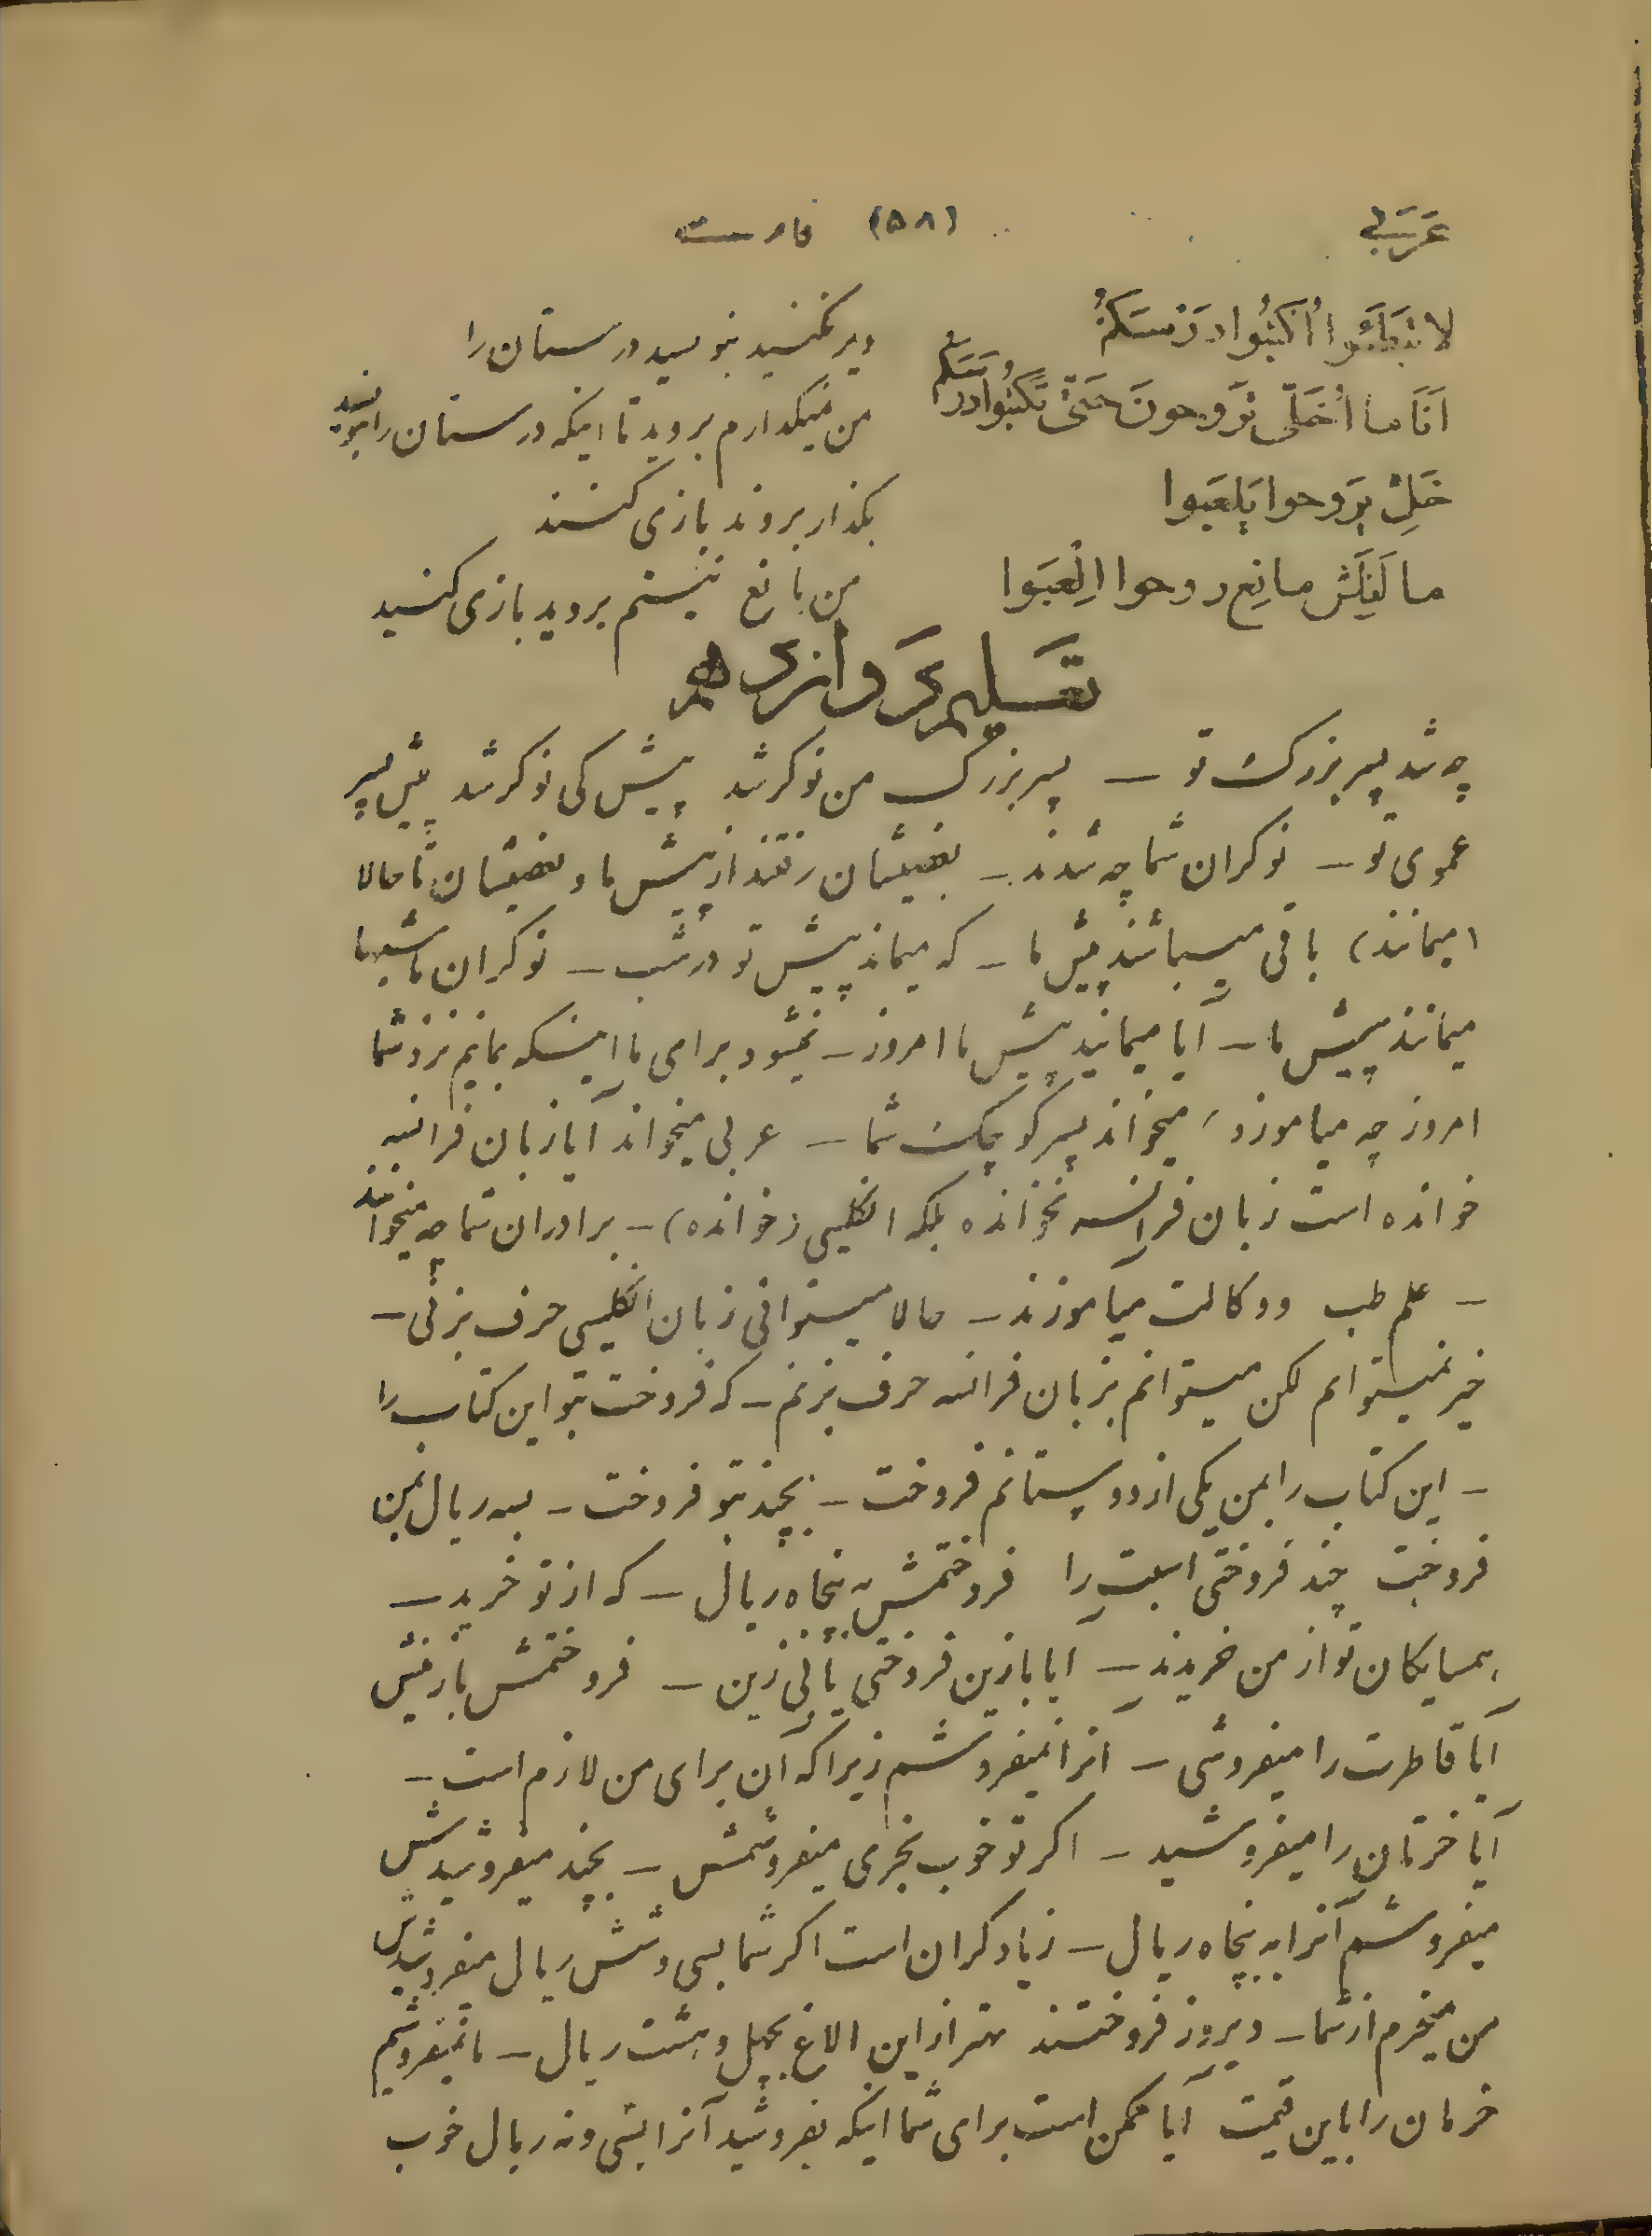 عَرَبی (۵۸) فارسی
لا تبطئوا اُکتُبُوا دَرسَکُم دیر نکنید بنویسید درستان را
اَنَا ما اُخَلّی تَروحونَ حَتّی تَکتُبُوا دَرسَکُم من نمیگذارم بروید تا اینکه درستان را بنویسید
خَلِّ یِرَوحوا یِلعَبوا بگذار بروند بازی کنند
ما لَنِیَش مانِع روحوا اِلْعَبَوا من مانع نیستم بروید بازی کنید
چه شد پسر بزرگ تو – پسر بزرگ من نوکر شد پیش کی نوکر شد پیش پسر
عموی تو – نوکران شما چه شدند – بعضیشان رفتند از پیش ما و بعضیشان تا حالا
(میمانند) باقی میباشند پیش ما – که میماند پیش تو در شب – نوکران ما شبها
میمانند پیش ما – آیا میمانید پیش ما امروز – نمیشود برای ما اینکه بمانیم نزد شما
امروز چه میاموزد، میخواند پسر کوچک شما – عربی میخواند آیا زبان فرانسه
خوانده است زبان فرانسه نخوانده بلکه انگلیسی (خوانده) – برادران شما چه میخوانند
– علم طب و وکالت میآموزند – حالا میتوانی زبان انگلیسی حرف بزنی –
خیر نمیتوانم لکن میتوانم بزبان فرانسه حرف بزنم – که فروخت بتو این کتاب را
– این کتاب را بمن یکی از دوستانم فروخت – بچند بتو فروخت – بسه ریال بمن
فروخت چند فروختی اسبت را فروختمش به پنجاه ریال – که از تو خرید –
همسایکان تو از من خریدند – ایا با زین فروختی یا بی زین – فروختمش با زینش
آیا قاطرت را میفروشی – انرا نمیفروشم زیرا که آن برای من لازم است –
آیا خرتان را میفروشید – اکر تو خوب بخری میفروشمش – بچند میفروشیدش
میفروشم آنرا به پنجاه ریال – زیاد کران است اکر شما بسی و شش ریال میفروشیدش
من میخرم از شما – دیروز فروختند بهتر از این الاغ بچهل و هشت ریال – ما نمیفروشیم
خرمان را باین قیمت آیا ممکن است برای شما اینکه بفروشید آنرا بسی و نه ریال خوب